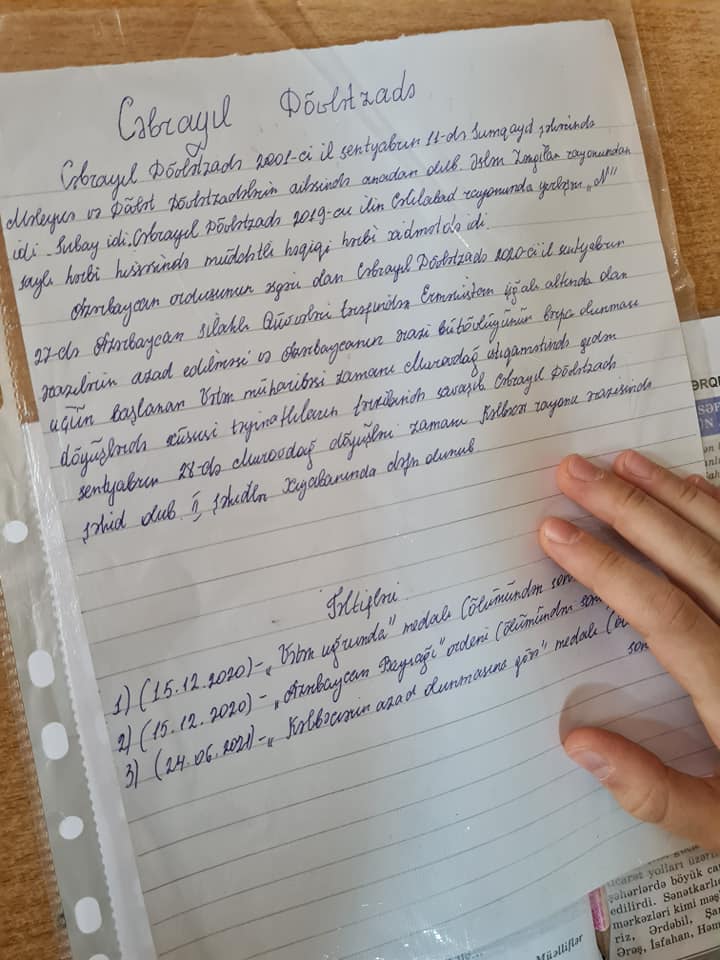 Cəbrayıl Dövlətzadə
Cəbrayıl Dövlətzadə 2001-ci il sentyabrın 11-də Sumqayıt şəhərində
və Dövlət Dövlətzadələrin ailəsində anadan olub. Əslən Zəngilan rayonundan
idi. Subay idi. Cəbrayıl Dövlətzadə 2019-cu ilin Cəlilabad rayonunda yerləşən „N"
saylı hərbi hissəsində müddətli həqiqi hərbi xidmətdə idi.
Azərbaycan ordusunun əsgəri olan Cəbrayıl Dövlətzadə 2020-ci il sentyabrın
27-də Azərbaycan Silahlı Qüvvələri tərəfindən Ermənistan işğalı altında olan
ərazilərin azad edilməsi və Azərbaycanın ərazi bütövlüyünün bərpa olunması
üçün başlanan Vətən müharibəsi zamanı Murovdağ istiqamətində gedən
döyüşlərdə xüsusi təyinatlıların tərkibində savaşıb. Cəbrayıl Dövlətzadə
sentyabrın 28-də Murovdağ döyüşləri zamanı Kəlbəcər rayonu ərazisində
şəhid olub. II Şəhidlər Xiyabanında dəfn olunub.
Təltifləri
1) (15.12.2020) - „Vətən uğrunda" medalı (ölümündən son
2) (15.12.2020) - „Azərbaycan Bayrağı" ordeni (ölümündən son
3) (24.06.2021) - „Kəlbəcərin azad olunmasına görə" medalı (
son
Müəlliflər
ticarət yolları üzəri
şəhərlərdə böyük ca
edilirdi. Sənətkarlıq
mərkəzləri kimi məş
riz, Ərdəbil, Şa
Ərəş, İsfahan, Həm